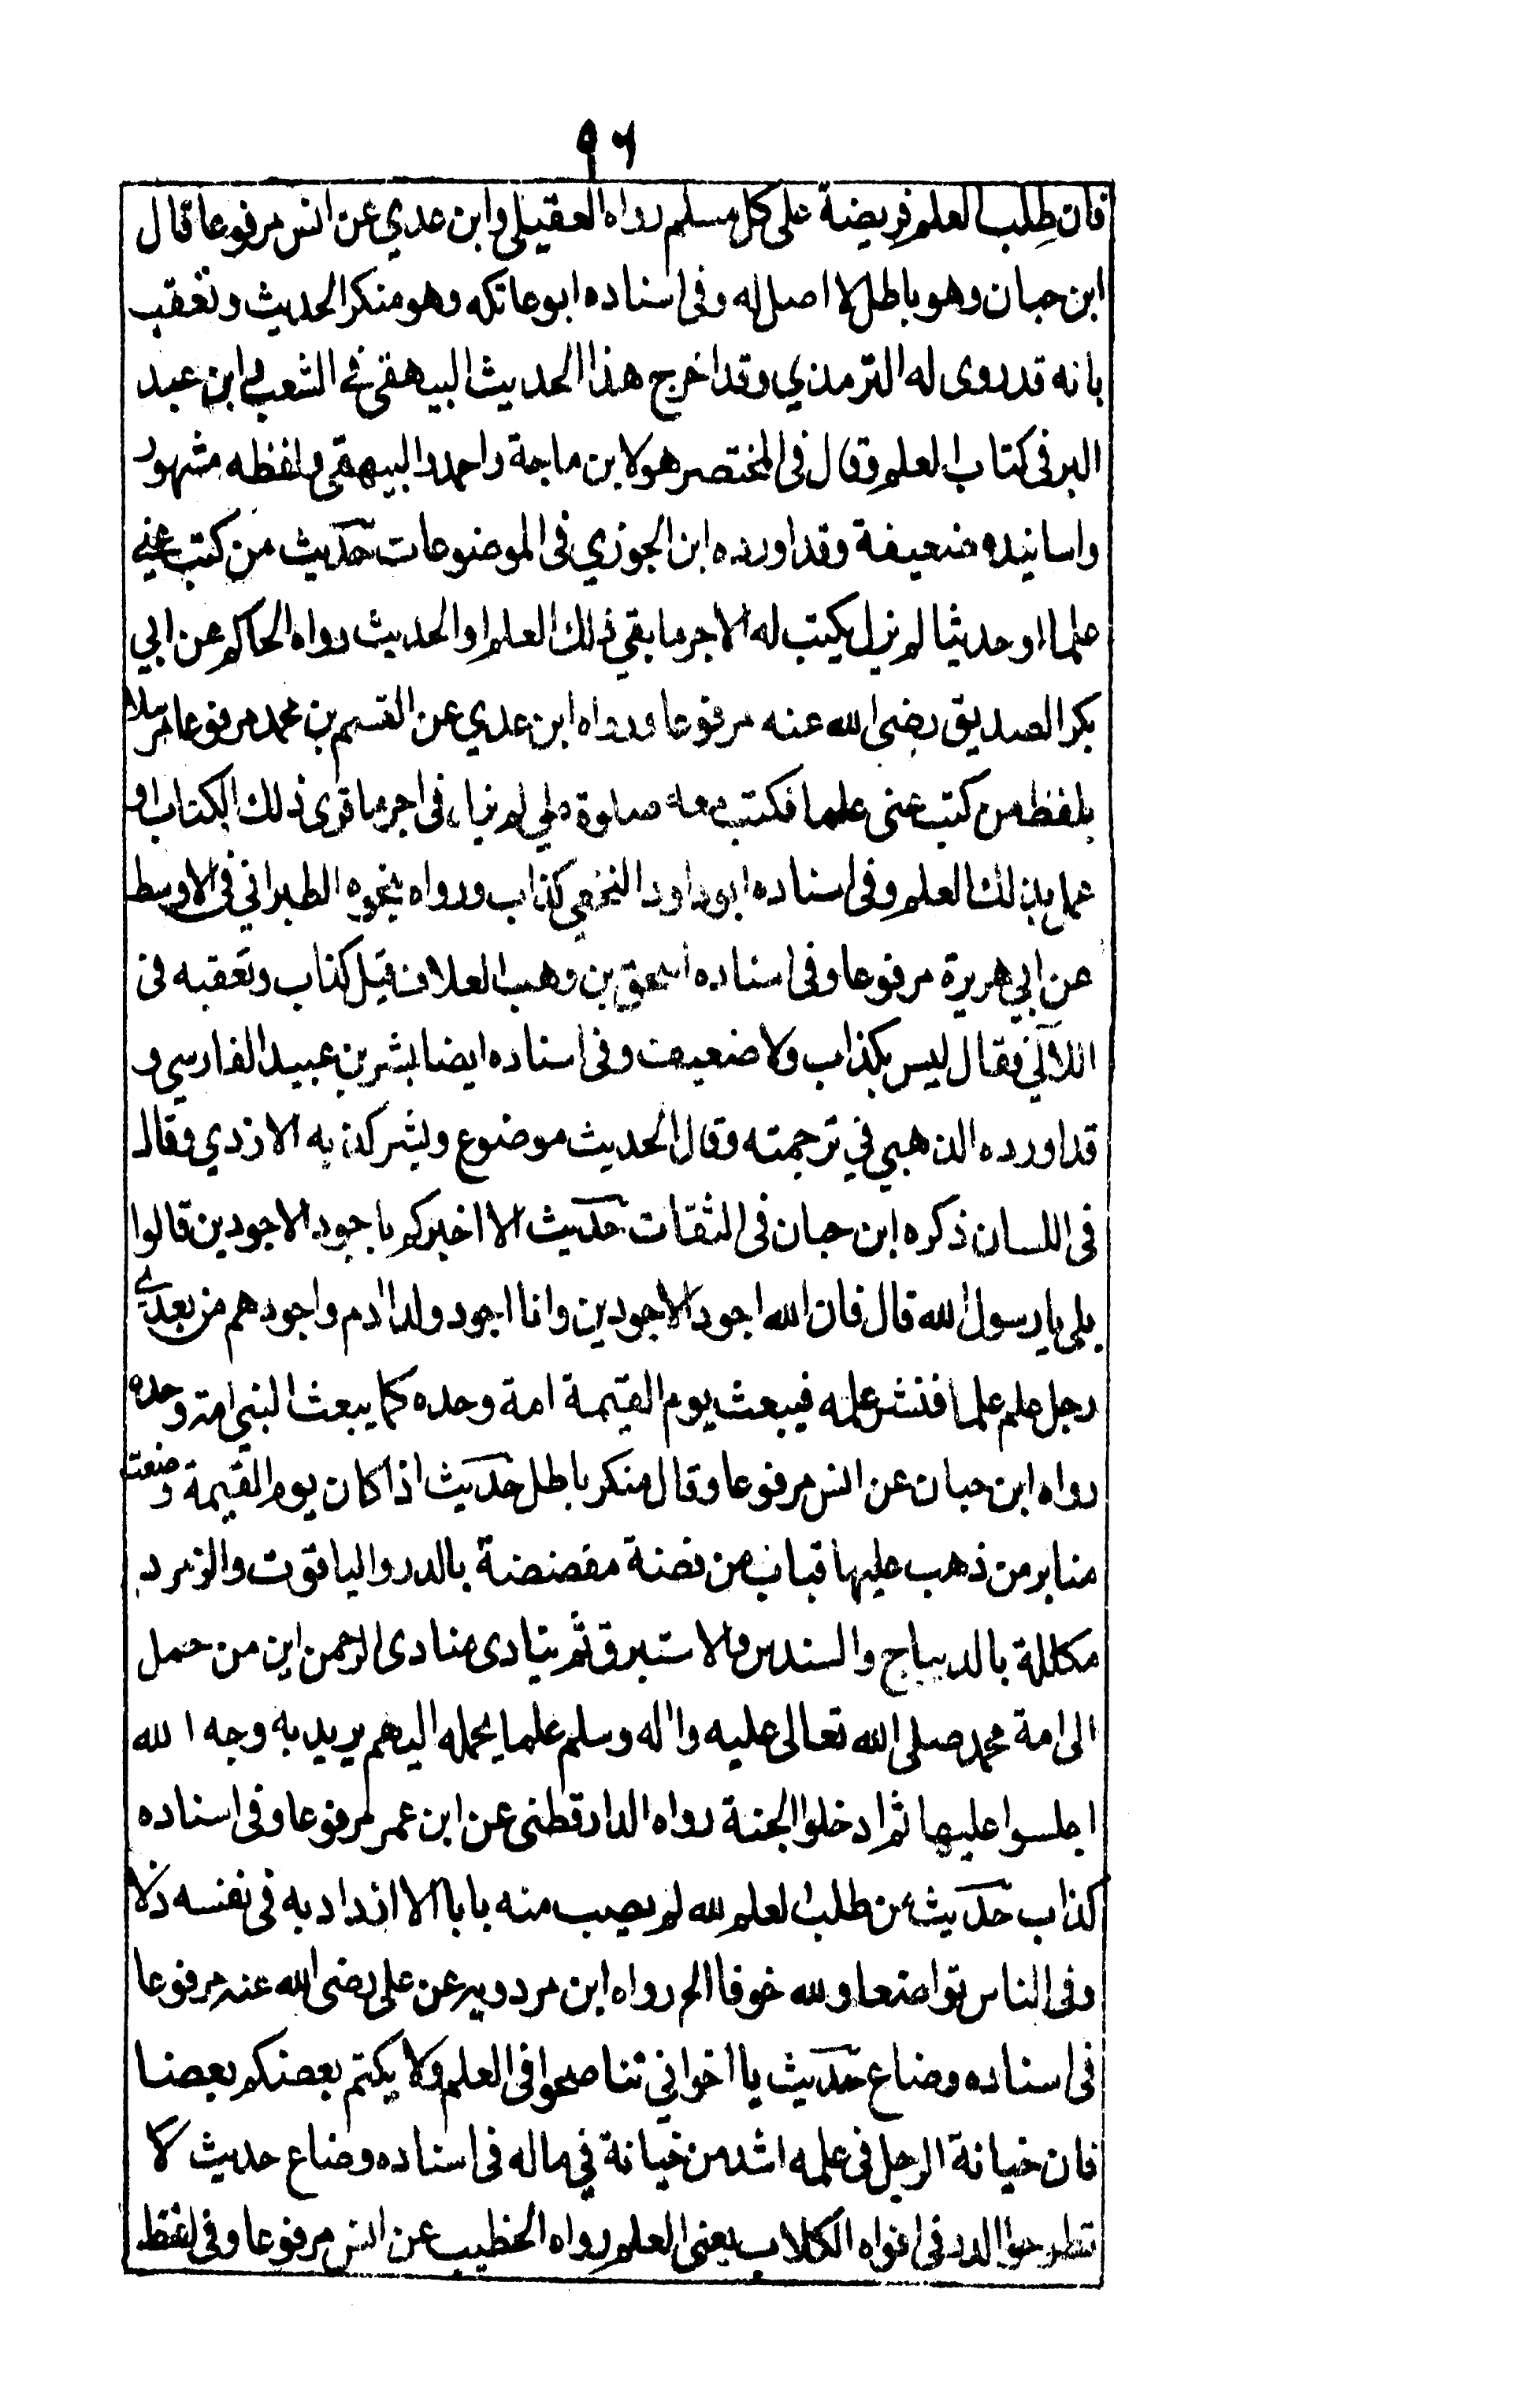 ٩٦
فان طلب العلم فريضة على كل مسلم رواه العقيلى وابن عدي عن انس مرفوعا قال
ابن حبان وهو باطل لا اصل له وفى اسناده ابو عاتكه وهو منكر الحديث وتعقب
بانه قد روى له الترمذي وقد اخرج هذا الحديث البيهقى في الشعب وابن عبد
البر فى كتاب العلم وقال فى المختصر هو لابن ماجة واحمد والبيهقى ولفظه مشهور
واسانيده ضعيفة وقد اورده ابن الجوزي فى الموضوعات حديث من كتب عني
علما او حديثا لم يزل يكتب له الاجر ما بقي ذلك العلم او الحديث رواه الحاكم عن ابي
بكر الصديق رضى الله عنه مرفوعا ورواه ابن عدي عن القسم بن محمد مرفوعا مرسلا
بلفظ من كتب عنى علما فكتب معه صلوة علي لم يزل فى اجر ما قرى ذلك الكتاب او
عمل بذلك العلم وفى اسناده ابو داود النخعي كذاب ورواه بنحوه الطبراني فى الاوسط
عن ابي هريرة مرفوعا وفى اسناده اسحق بن وهب العلاف قيل كذاب وتعقبه فى
اللآلي فقال ليس بكذاب ولا ضعيف وفى اسناده ايضا بشر بن عبيد الفارسي و
قد اورده الذهبي في ترجمته وقال الحديث موضوع وبشر كذبه الازدي وقال
فى اللسان ذكره ابن حبان فى الثقات حديث الا اخبركم باجود الاجودين قالوا
بلى يا رسول الله قال فان الله اجود الاجودين وانا اجود ولد ادم واجودهم من بعدي
رجل علم علما فنشر علمه فيبعث يوم القيمة امة وحده كما يبعث النبي امة وحده
رواه ابن حبان عن انس مرفوعا وقال منكر باطل حديث اذا كان يوم القيمة وضعت
منابر من ذهب عليها قباب من فضة مفضضة بالدر والياقوت والزمرد
مكللة بالديباج والسندس والاستبرق ثم ينادى منادى الرحمن اين من حمل
الى امة محمد صلى الله تعالى عليه واله وسلم علما يحمله اليهم يريد به وجه الله
اجلسوا عليها ثم ادخلوا الجنة رواه الدارقطنى عن ابن عمر مرفوعا وفى اسناده
كذاب حديث من طلب العلم لله لم يصب منه بابا الا ازداد به فى نفسه ذلا
وفى الناس تواضعا ولله خوفا الخ رواه ابن مردويه عن على رضى الله عنه مرفوعا
فى اسناده وضاع حديث يا اخواني تناصحوا فى العلم ولا يكتم بعضكم بعضا
فان خيانة الرجل فى علمه اشد من خيانة في ماله فى اسناده وضاع حديث لا
تطرحوا الدر فى افواه الكلاب يعنى العلم رواه الخطيب عن انس مرفوعا وفى لفظ